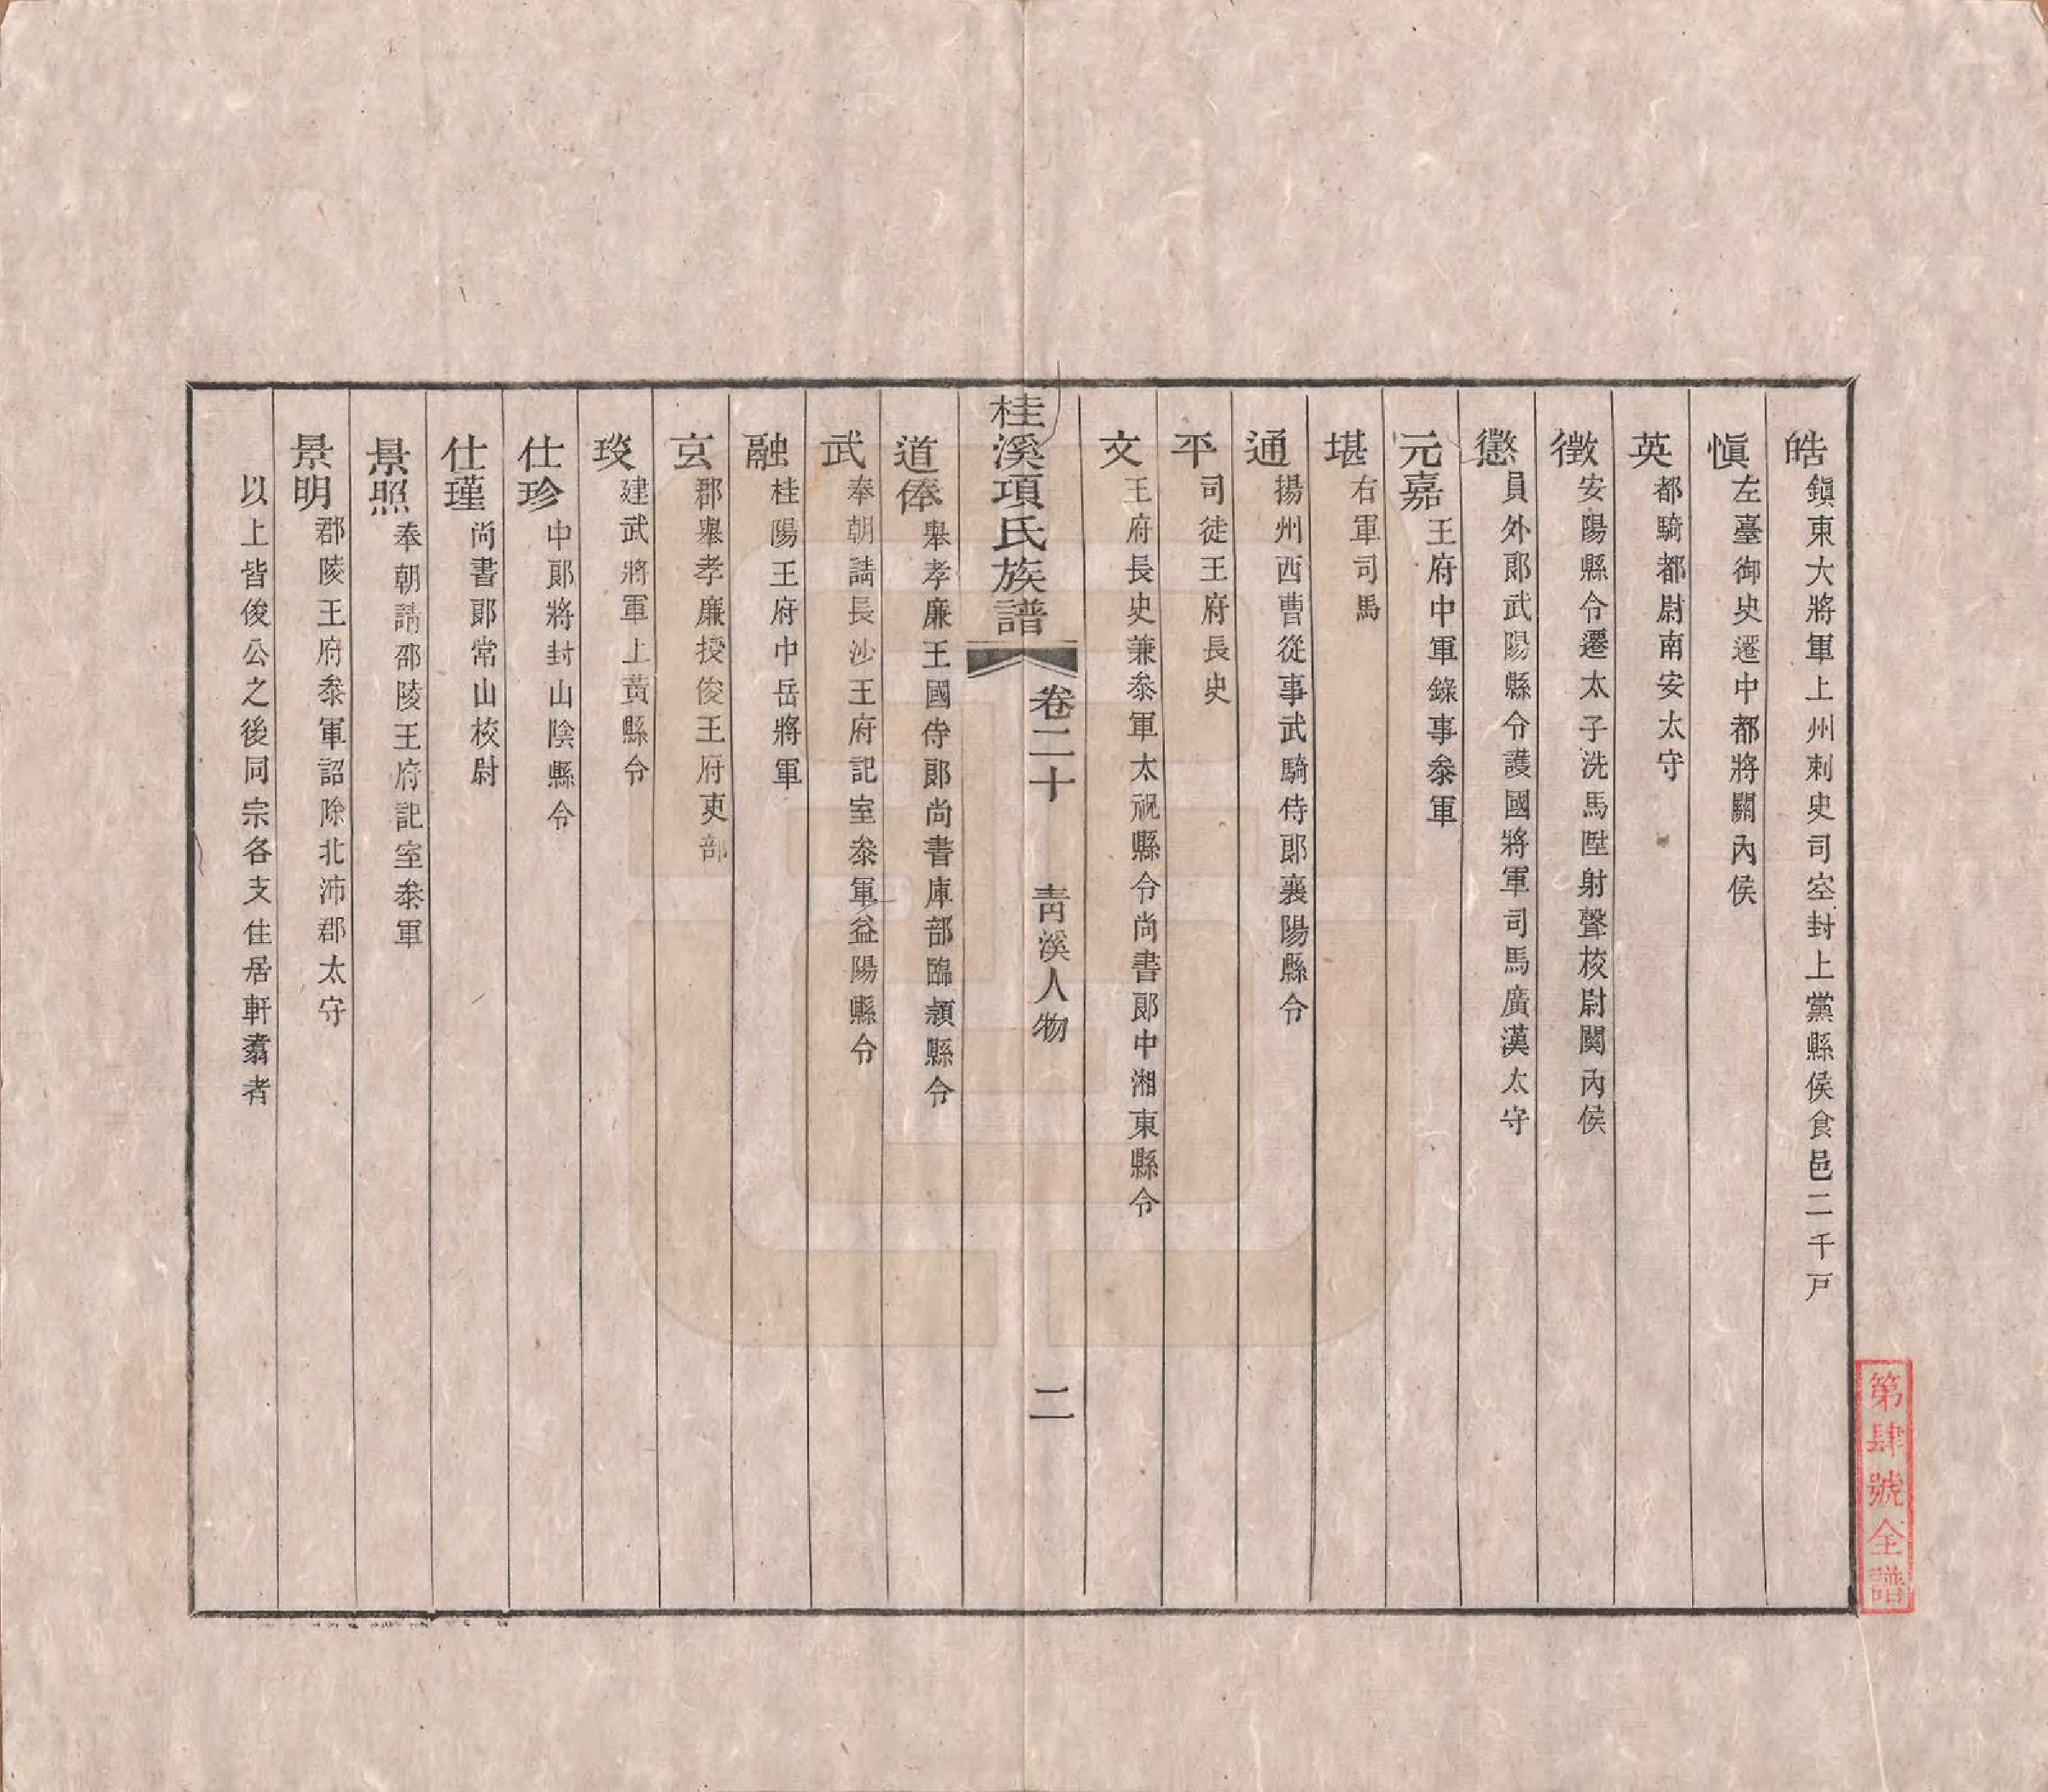 皓 鎭東大將軍上州刺史司空封上黨縣侯食邑二千戸
愼 左臺御史遷中都將關內侯
英 都騎都尉南安太守
徵 安陽縣令遷太子洗馬陞射聲校尉關內侯
懲 員外郞武陽縣令護國將軍司馬廣漢太守
元嘉 王府中軍錄事叅軍
堪 右軍司馬
通 揚州西曹從事武騎侍郞襄陽縣令
平 司徒王府長史
文 王府長史兼叅軍太祝縣令尚書郞中湘東縣令
桂溪項氏族譜 卷二十 靑溪人物 二
道俸 舉孝廉王國侍郞尚書庫部臨潁縣令
武 奉朝請長沙王府記室叅軍益陽縣令
融 桂陽王府中岳將軍
玄 郡舉孝廉授俊王府吏部
琰 建武將軍上黃縣令
仕珍 中郞將封山陰縣令
仕瑾 尚書郞常山校尉
景照 奉朝請邵陵王府記室叅軍
景明 郡陵王府叅軍詔除北沛郡太守
以上皆俊公之後同宗各支住居軒翥者
第肆號全譜